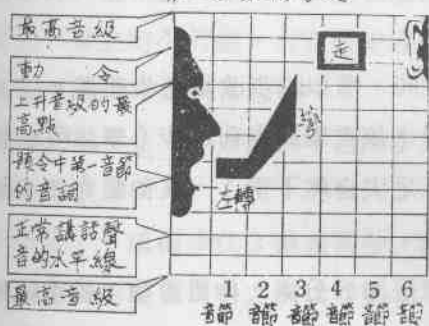 最高音級
動令
上升音級的最
高點
預令中第一音節
的音調
正常講話聲
音的水平線
最高音級
走
彎
左轉
1 2 3 4 5 6
音節 音節 音節 音節 音節 音節